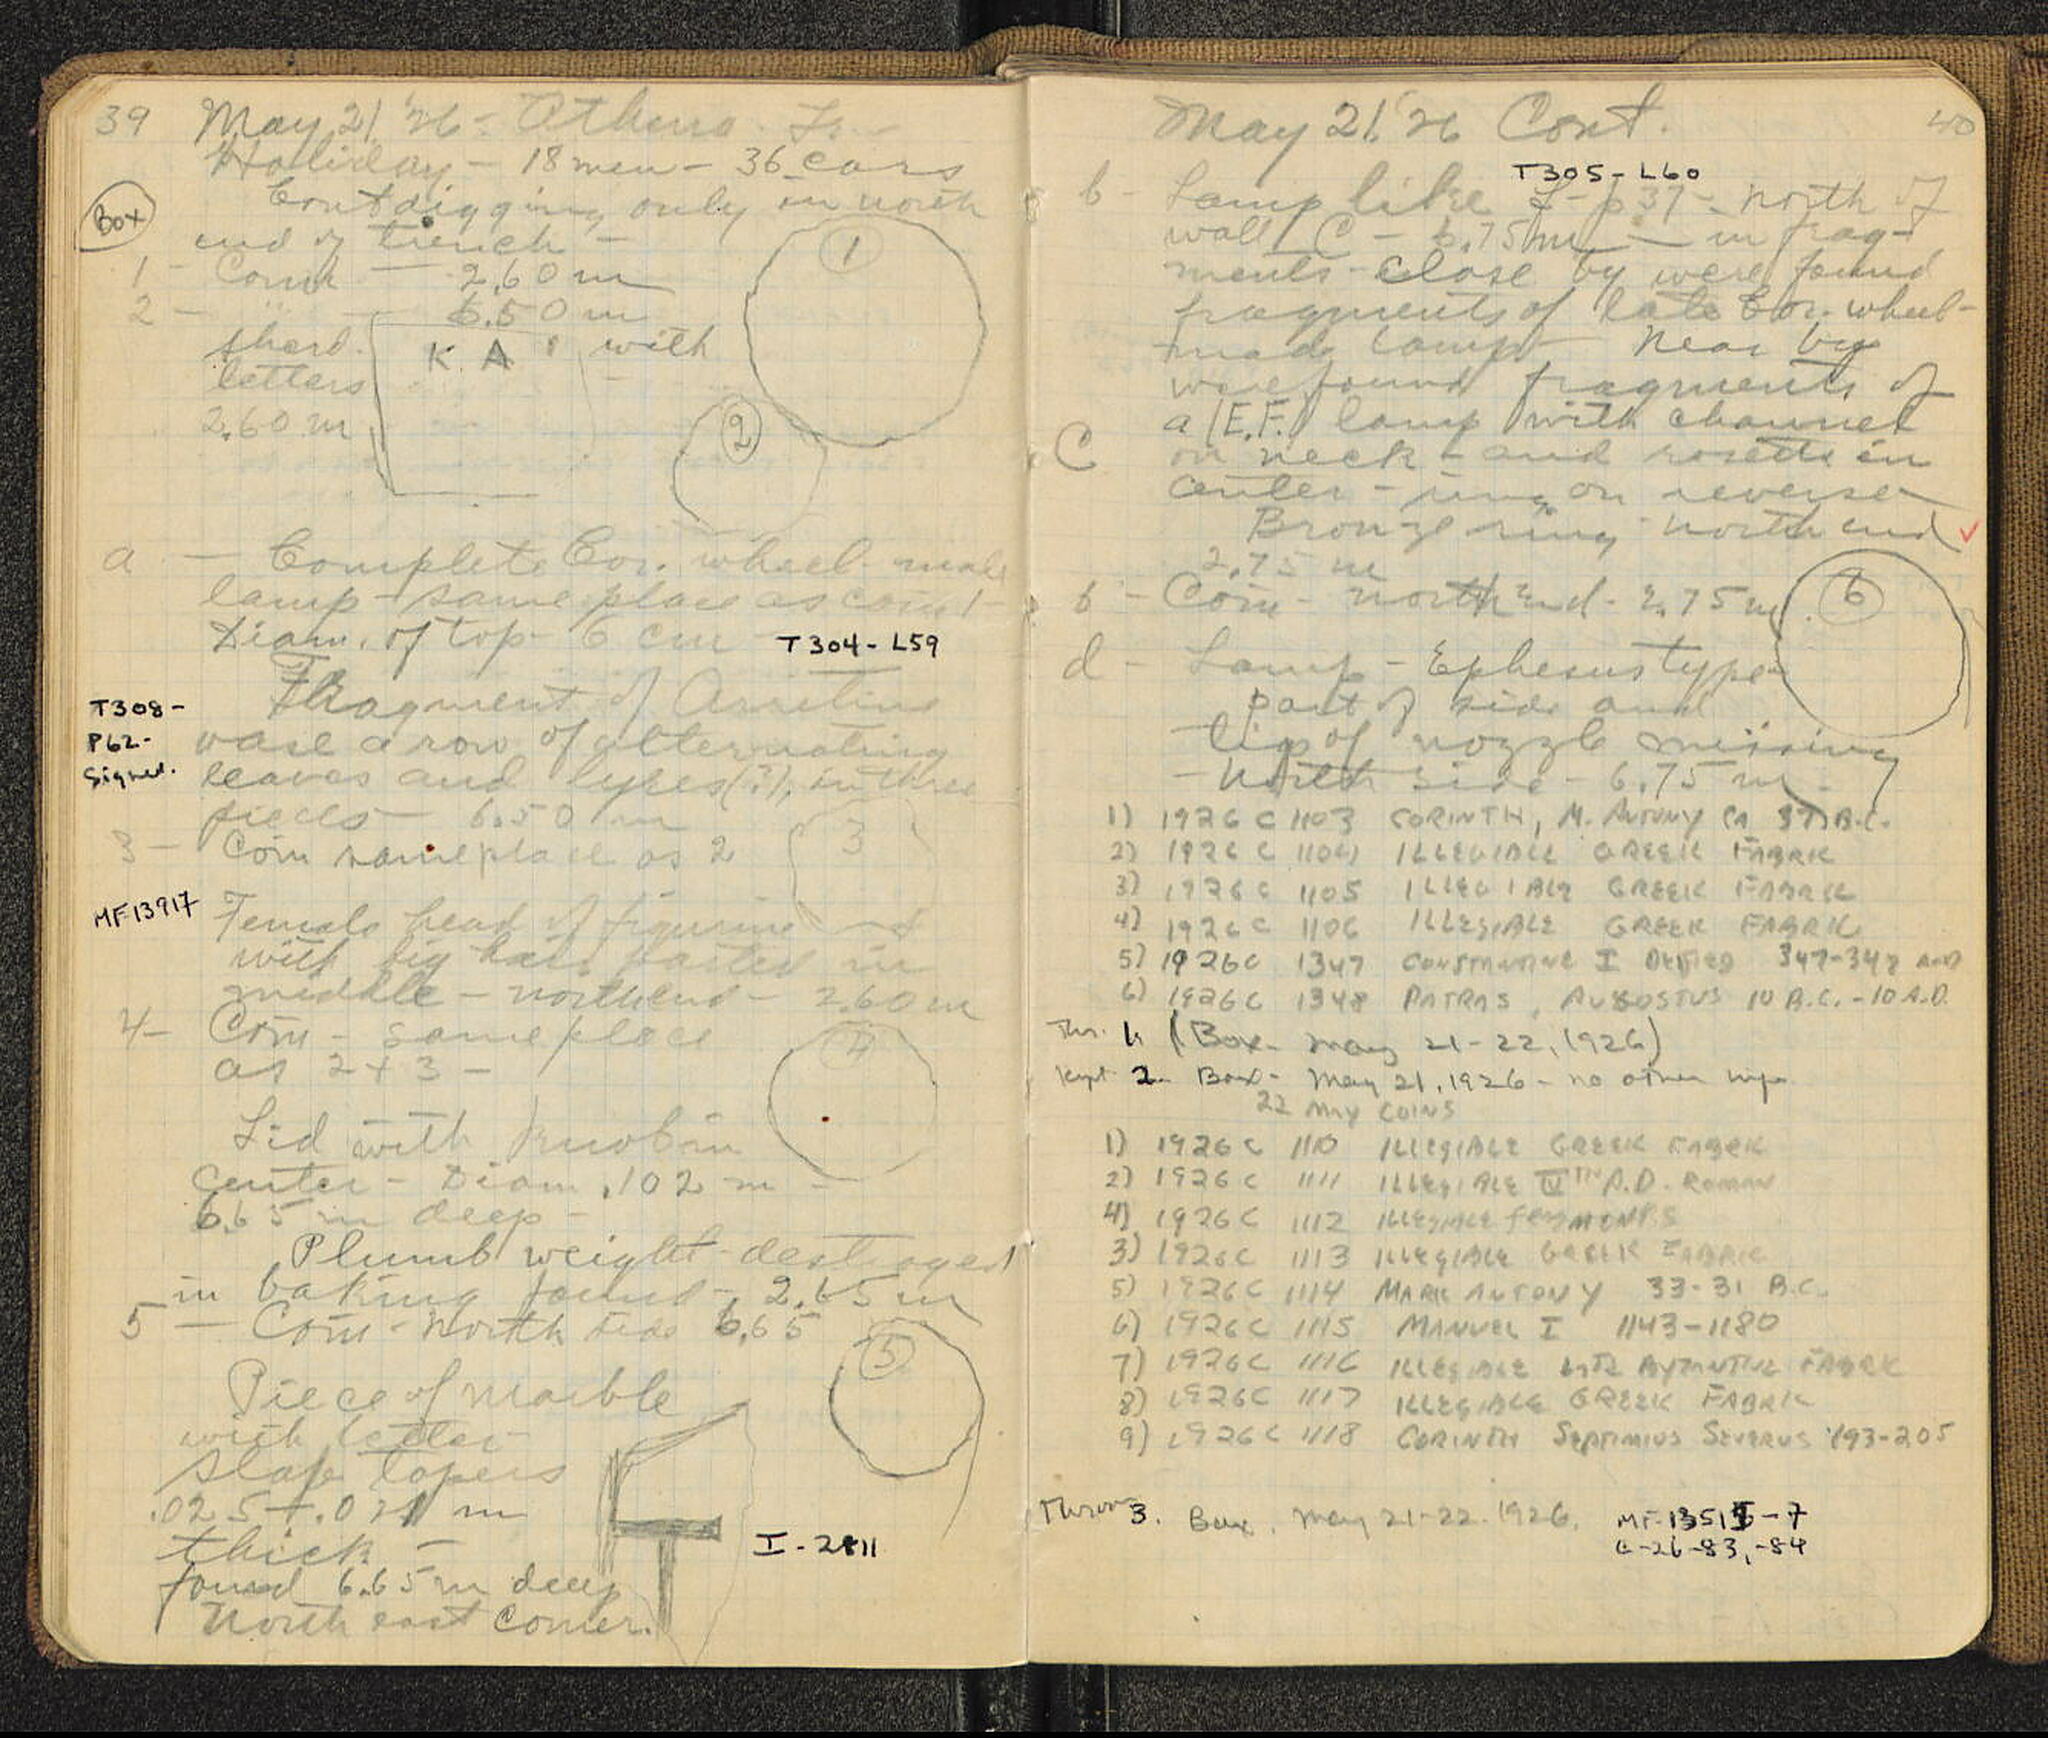 39 May 21 '26 - Others
Holiday - 18 men - 36 cars
Box
Cont digging only in north
end of trench -
1 - Coin - 2.60 m
2 - " - 6.50 m
sherd K A with
letters
2.60 m
1
2
a - Complete Cor. wheel-made
lamp - same place as coin 1 -
Diam. of top - 6 cm - T304-L59
Fragment of Arretine
T308-
P62-
Signed.
vase a row of alternating
leaves and lyres (?), in three
pieces - 6.50 m
3 - Coin same place as 2
3
MF13917
Female head of figurine
with big hair parted in
middle - north end - 2.60 m
4 - Coin - same place
as 2 + 3 -
4
Lid with knob in
center - Diam .102 m -
6.65 m deep -
Plumb weight - destroyed
in baking found - 2.65 m
5 - Coin - north side 6.65
5
Piece of marble
with letter
slab tapers
.025 - .021 m
thick -
I-2811
found 6.65 m deep
North east corner.
May 21 '26 Cont. 40
T305-L60
b - Lamp like L - p 37 - north of
wall C - 6.75 m - in frag-
ments - close by were found
fragments of late Cor. wheel-
made lamp - Near by
were found fragments of
a (E.F.) lamp with channel
C on neck - and rosette in
center - ring on reverse
Bronze ring - north end ✓
2.75 m
6 - Coin - north end - 2.75 m
6
d - Lamp - Ephesus type
part of side and
tip of nozzle missing
- North side - 6.75 m.
1) 1926 C 1103 CORINTH, M. ANTONY CA 37 B.C.
2) 1926 C 1104 ILLEGIBLE GREEK FABRIC
3) 1926 C 1105 ILLEGIBLE GREEK FABRIC
4) 1926 C 1106 ILLEGIBLE GREEK FABRIC
5) 1926 C 1347 CONSTANTINE I DEIFIED 347-348 A.D
6) 1926 C 1348 PATRAS, AUGUSTUS 10 B.C. - 10 A.D.
Thr. 1. (Box - May 21-22, 1926)
Kept 2. Box - May 21, 1926 - no other info
22 MAY COINS
1) 1926 C 1110 ILLEGIBLE GREEK FABRIC
2) 1926 C 1111 ILLEGIBLE IVTH A.D. ROMAN
4) 1926 C 1112 ILLEGIBLE FRAGMENTS
3) 1926 C 1113 ILLEGIBLE GREEK FABRIC
5) 1926 C 1114 MARK ANTONY 33-31 B.C.
6) 1926 C 1115 MANUEL I 1143-1180
7) 1926 C 1116 ILLEGIBLE LATE BYZANTINE FABRIC
8) 1926 C 1117 ILLEGIBLE GREEK FABRIC
9) 1926 C 1118 CORINTH SEPTIMIUS SEVERUS 193-205
Thrown 3. Box. May 21-22. 1926. MF-13515-7
C-26-83, -84